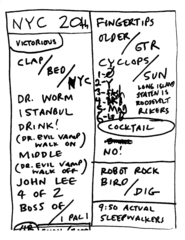 NYC 20th
VICTORIOUS
CLAP/
BED/
NYC
DR. WORM
ISTANBUL
DRINK!
(DR. EVIL VAMP)
WALK ON
MIDDLE
(DR. EVIL VAMP)
WALK OFF
JOHN LEE
4 OF 2
BOSS OF
/ PAL!
FINGERTIPS
OLDER/
GTR
CYCLOPS/
SUN
LONG ISLAND
STATEN IS
ROOSEVELT
RIKERS
COCKTAIL
NO!
ROBOT ROCK
BIRD/
DIG
9:50 ACTUAL
SLEEPWALKERS